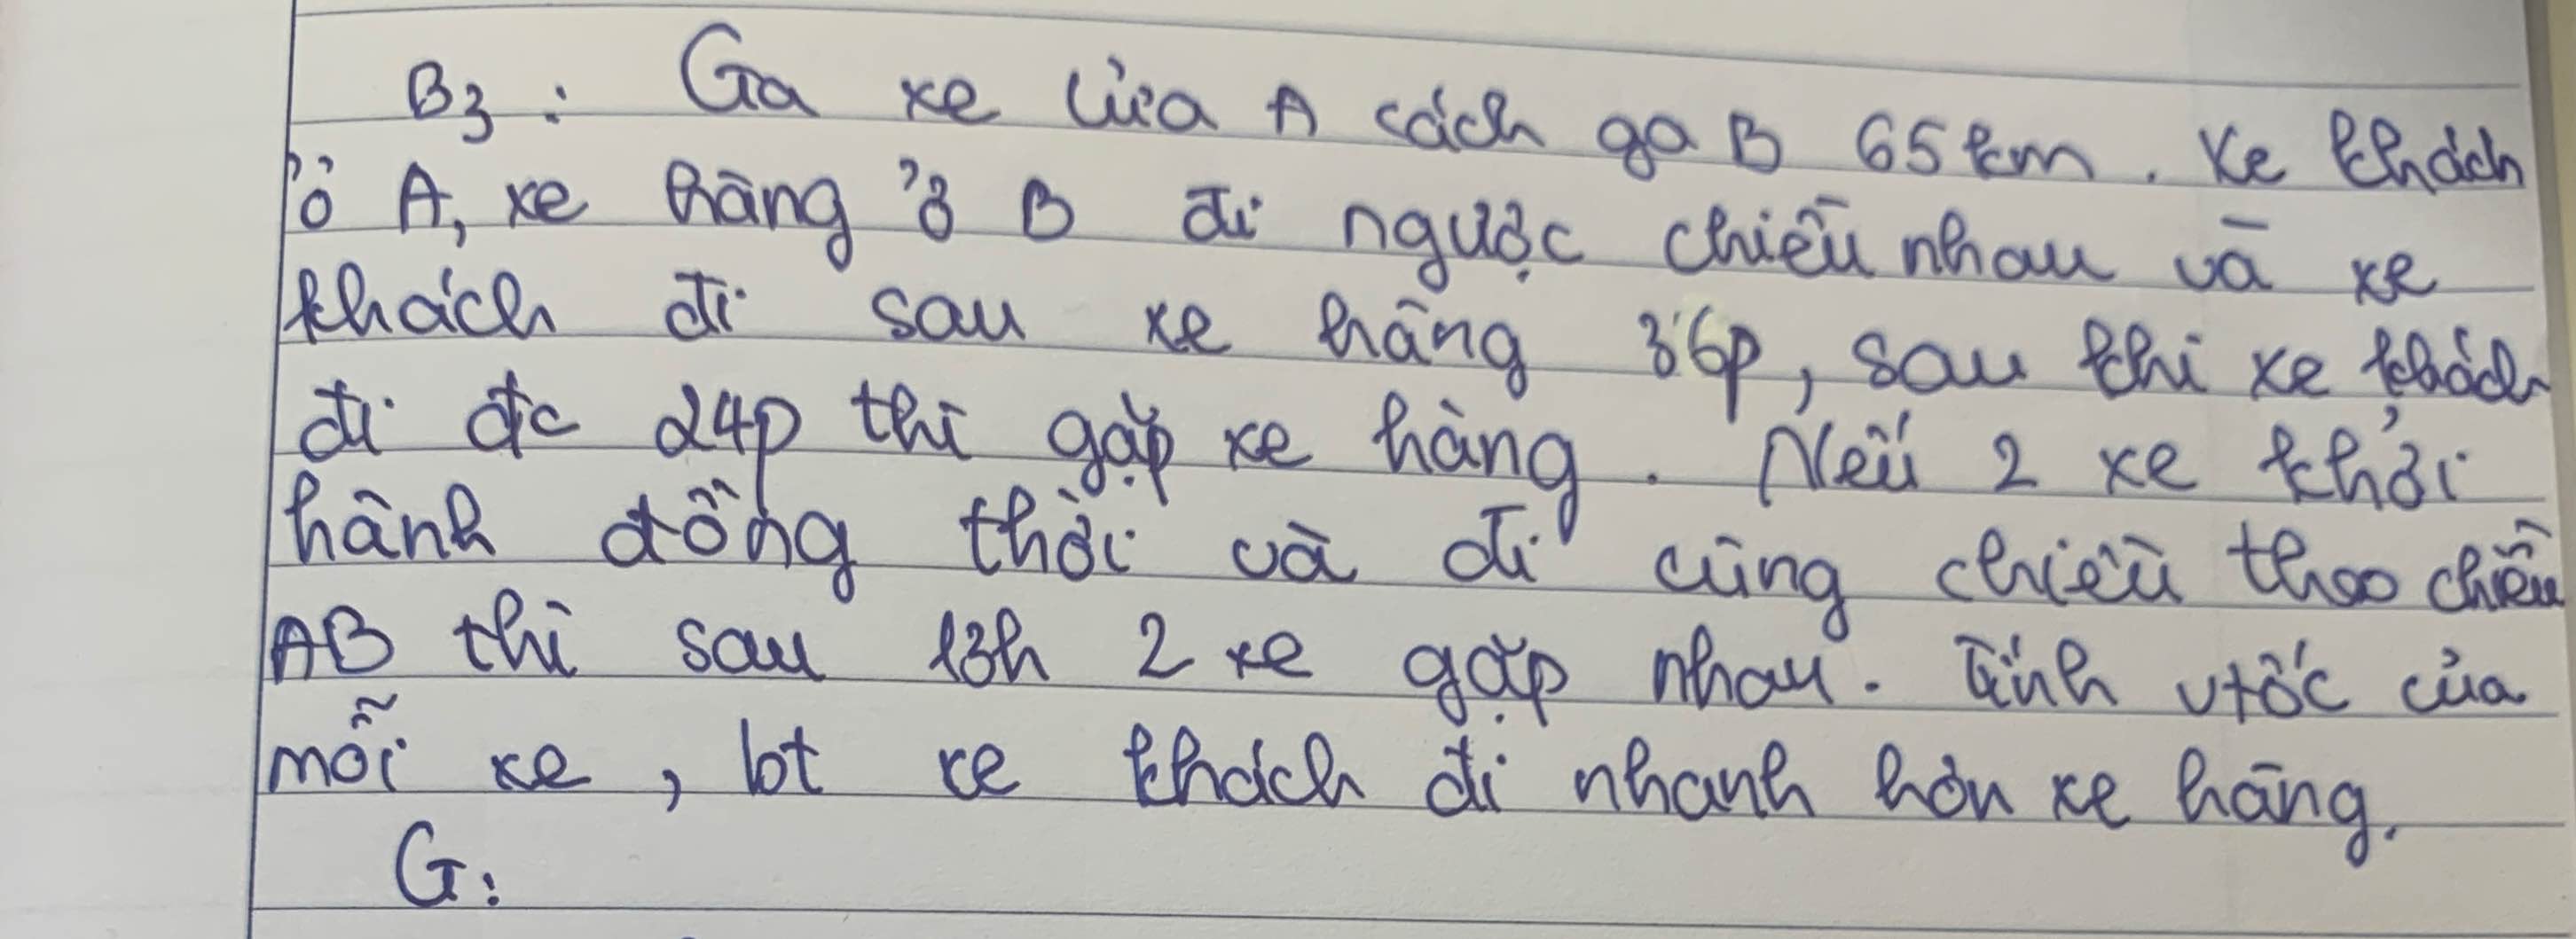 B3: Ga xe lửa A cách ga B 65km. Xe khách
ở A, xe hàng ở B đi ngược chiều nhau và xe
khách đi sau xe hàng 36p, sau khi xe khách
đi đc 24p thì gặp xe hàng. Nếu 2 xe khởi
hành đồng thời và đi cùng chiều theo chiều
AB thì sau 13h 2 xe gặp nhau. Tính vtốc của
mỗi xe, bt xe khách đi nhanh hơn xe hàng.
G: